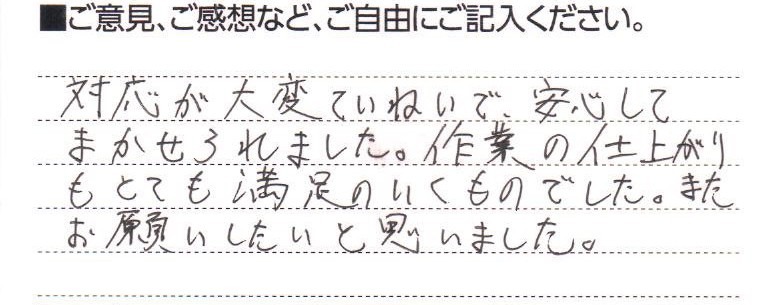 ■ご意見、ご感想など、ご自由にご記入ください。
対応が大変ていねいで、安心して
まかせられました。作業の仕上がり
もとても満足のいくものでした。また
お願いしたいと思いました。